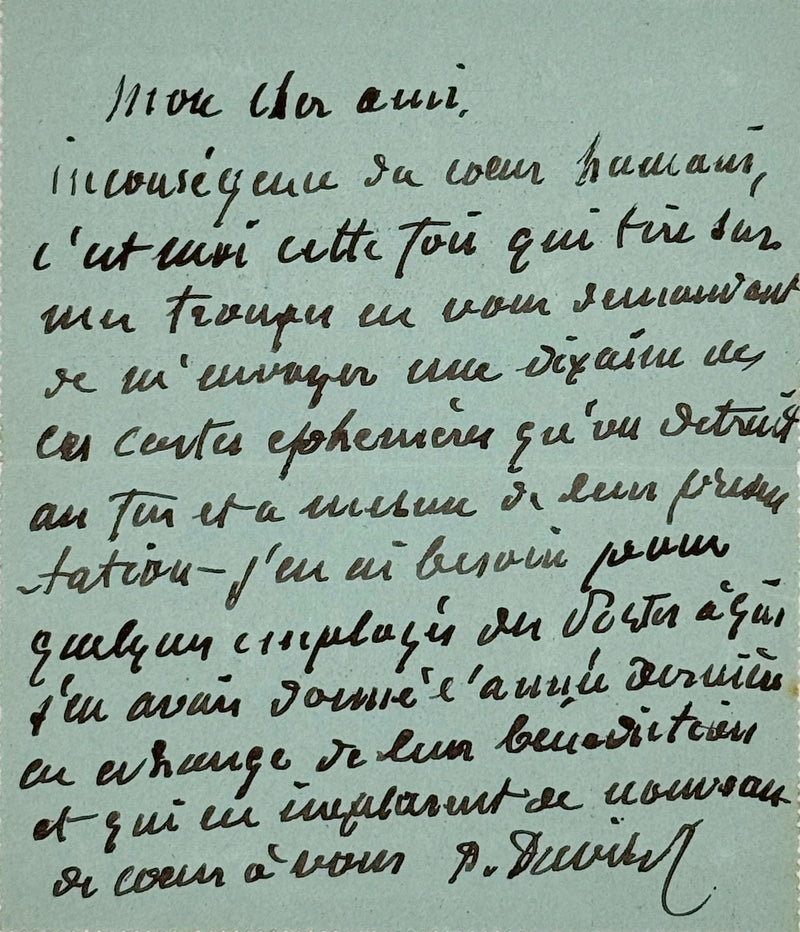 Mon cher ami,
inconséquence du coeur humain,
c'est moi cette fois qui tire sur
mes troupes en vous demandant
de m'envoyer une dixaine de
ces cartes ephemères qu'on detruit
au fur et a mesure de leur présen
-tation - j'en ai besoin pour
quelques employés des Postes à qui
j'en avais donné l'année dernière
en echange de leur bénédiction
et qui en implorent de nouveau
de coeur à vous A.